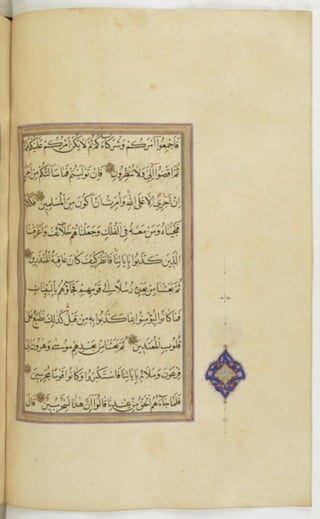 فاجمعوا امركم وشركاءكم ثم لا يكن امركم عليكم غمة
ثم اقضوا الي ولا تنظرون فان توليتم فما سالتكم من اجر
ان اجري الا على الله وامرت ان اكون من المسلمين فكذبوه
فنجيناه ومن معه في الفلك وجعلناهم خلائف واغرقنا
الذين كذبوا باياتنا فانظر كيف كان عاقبة المنذرين
ثم بعثنا من بعده رسلا الى قومهم فجاؤهم بالبينات
فما كانوا ليؤمنوا بما كذبوا به من قبل كذلك نطبع على
قلوب المعتدين ثم بعثنا من بعدهم موسى وهرون الى
فرعون وملائه باياتنا فاستكبروا وكانوا قوما مجرمين
فلما جاءهم الحق من عندنا قالوا ان هذا لسحر مبين قال